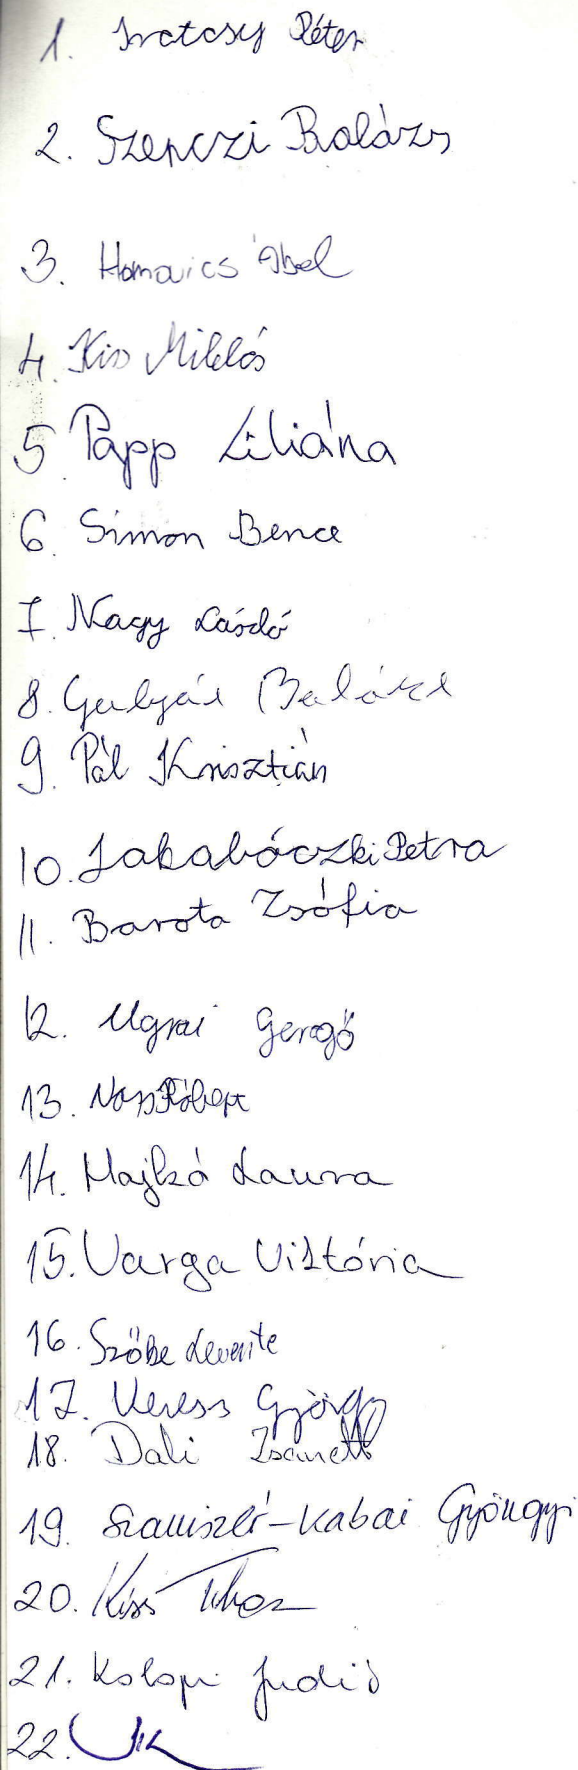 1. Iratosy Péter
2. Szenczi Balázs
3. Homovics Ábel
4. Kiss Miklós
5 Papp Liliána
6. Simon Bence
7. Nagy László
8. Gulyás Balázs
9. Pál Krisztián
10. Jakabóczki Petra
11. Barota Zsófia
12. Ugrai Gergő
13. Vass Róbert
14. Majkó Laura
15. Varga Viktória
16. Szőke Levente
17. Veress György
18. Dali Zsanett
19. Szaniszló-Kabai Gyöngyi
20. Kiss
21. Kolopi Judit
22.